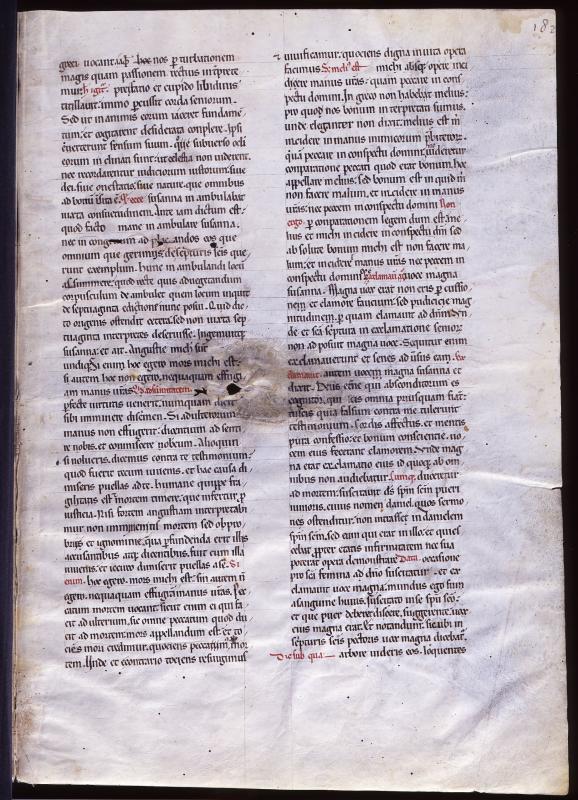 182
greci uocant hoc nos perturbationem
magis quam passionem rectius interpre
mur. igit perstatio et cupido libidinis
titillauit immo percussit corda seniorum.
Sed ut in animis eorum iaceret fundame
tum. et cogitarent desiderata complere. Ipsi
euerterunt sensum suum. subuerso oculi
eorum in clinati sunt ut celestia non uiderent.
nec recordarentur iudiciorum iustorum. siue
dei. siue onestatis. siue nature. que omnibus
ad bona insita est. ecce susanna in ambulabat
iuxta consuetudinem. Iure iam dictum est.
quod facto mane in ambulare susanna.
ad andos eos que
omnium que gerimus descripturis scis que
runt exemplum. hunc in ambulandi locum
Assumere. quod recte quis aduegetandum
corpusculum de ambulet quem locum inquit
de septuaginta edictione nunc posui. Quod dic
to origenis ostendit cetera sed non iuxta sep
tuaginta interpretes deseruisse. Ingemuitque
susanna. et ait. Angustie michi sunt
undique. Si enim hoc egero mors michi est.
si autem hoc non egero. nequaquam effugi
am manus uestras.
perfecte uirtutis uenerit. nunquam dicit
sibi imminere discrimen. Si adulterorum
manus non effugerit. dicentium ad senti
re nobis. et commiscere nobcum. Alioquin
si nolueris. dicemus contra te testimonium.
quod fuerit tecum iuuenis. et hac causa di
miseris puellas a te. humane quippe fra
gilitatis est mortem timere. que infertur pro
iusticia. Nisi fortem angustiam interpretabi
mur. non imminentis mortem sed obpro
briis et ignominie. qua perfundenda erit illis
accusantibus atque dicentibus. fuit cum illa
iuuenis. et iccirco dimiserit puellas a se. Si
enim. hoc egero. mors michi est. sin autem non
egero. nequaquam effugiam manus uestras. Pec
catum mortem uocant. sicut enim ei qui fa
cit adulterium. sic omne peccatum quod du
cit ad mortem. mors appellandum est. et to
ciens mori credimur. quociens peccatum mor
tem. Unde et econtrario tociens resurgimus
et uiuificamur. quociens digna in uita opera
facimus. Set melius est michi absque opere inci
dere in manus uestras. quam peccare in cons
pectu domini. In greco non habebat melius.
pro quod nos bonum interpretati sumus.
unde eleganter non dixit. melius est michi
incidere in manus inimicorum
quam peccare in conspectu domini. ne uideretur
comparatione peccati quod erat bonum. hoc
appellare melius. sed bonum est inquid michi
non facere malum. et incidere in manus
uestras. nec peccem in conspectu domini. Non
ergo. per comparationem legendum est. me
lius est michi incidere in conspectu domini sed
absolute bonum michi est non facere ma
lum. et incidere manus uestras nec peccem in
conspectu domini. Exclamauit uoce magna
susanna. Magna uox erat non eris per cussio
nem et clamore faucium. sed pudicicie mag
nitudinem. per quam clamauit ad dominum.
de et sca septura in exclamatione seniorum
non ad posuit magna uoce. Sequitur enim
exclamauerunt et senes aduersus eam. Ex
clamauit. autem uocem magna susanna et
dixit. Deus eterne qui absconditorum es
cognitor. qui scis omnia priusquam fiat.
tu scis quia falsum contra me tulerunt
testimonium. Cordis affectus. et mentis
pura confessio. et bonum conscientie. uo
cem eius fecerant clamorem. Unde mag
na erat exclamatio eius id quod ab om
nibus non audiebatur. Cumque. duceretur
ad mortem. suscitauit deus spiritum sanctum pueri
iunioris. cuius nomen daniel. quos sermo
nes ostenditur. non intrasse in danielem
spiritum sanctum. sed eum qui erat in illo. et quies
cebat propter etatis infirmitatem nec sua
poterat opera demonstrare. Data occasione
pro sca femina ad domino suscitatur. et ex
clamauit uoce magna. mundus ego sum
a sanguine huius. suscitato in se spiritu sancto.
et que puer debere dicere. suggerente. uox
eius magna erat. et notandum sicubi in
septuris scis pectoris uox magna dicebat.
Dic sub qua arbore uideris eos. loquentes